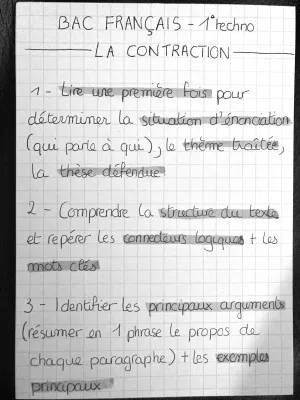 BAC FRANÇAIS - 1° techno
LA CONTRACTION
1 - Lire une première fois pour
déterminer la situation d'énonciation
(qui parle à qui), le thème traitée,
la thèse défendue
2 - Comprendre la structure du texte
et repérer les connecteurs logiques + les
mots clés
3 - Identifier les principaux arguments
(résumer en 1 phrase le propos de
chaque paragraphe) + les exemples
principaux